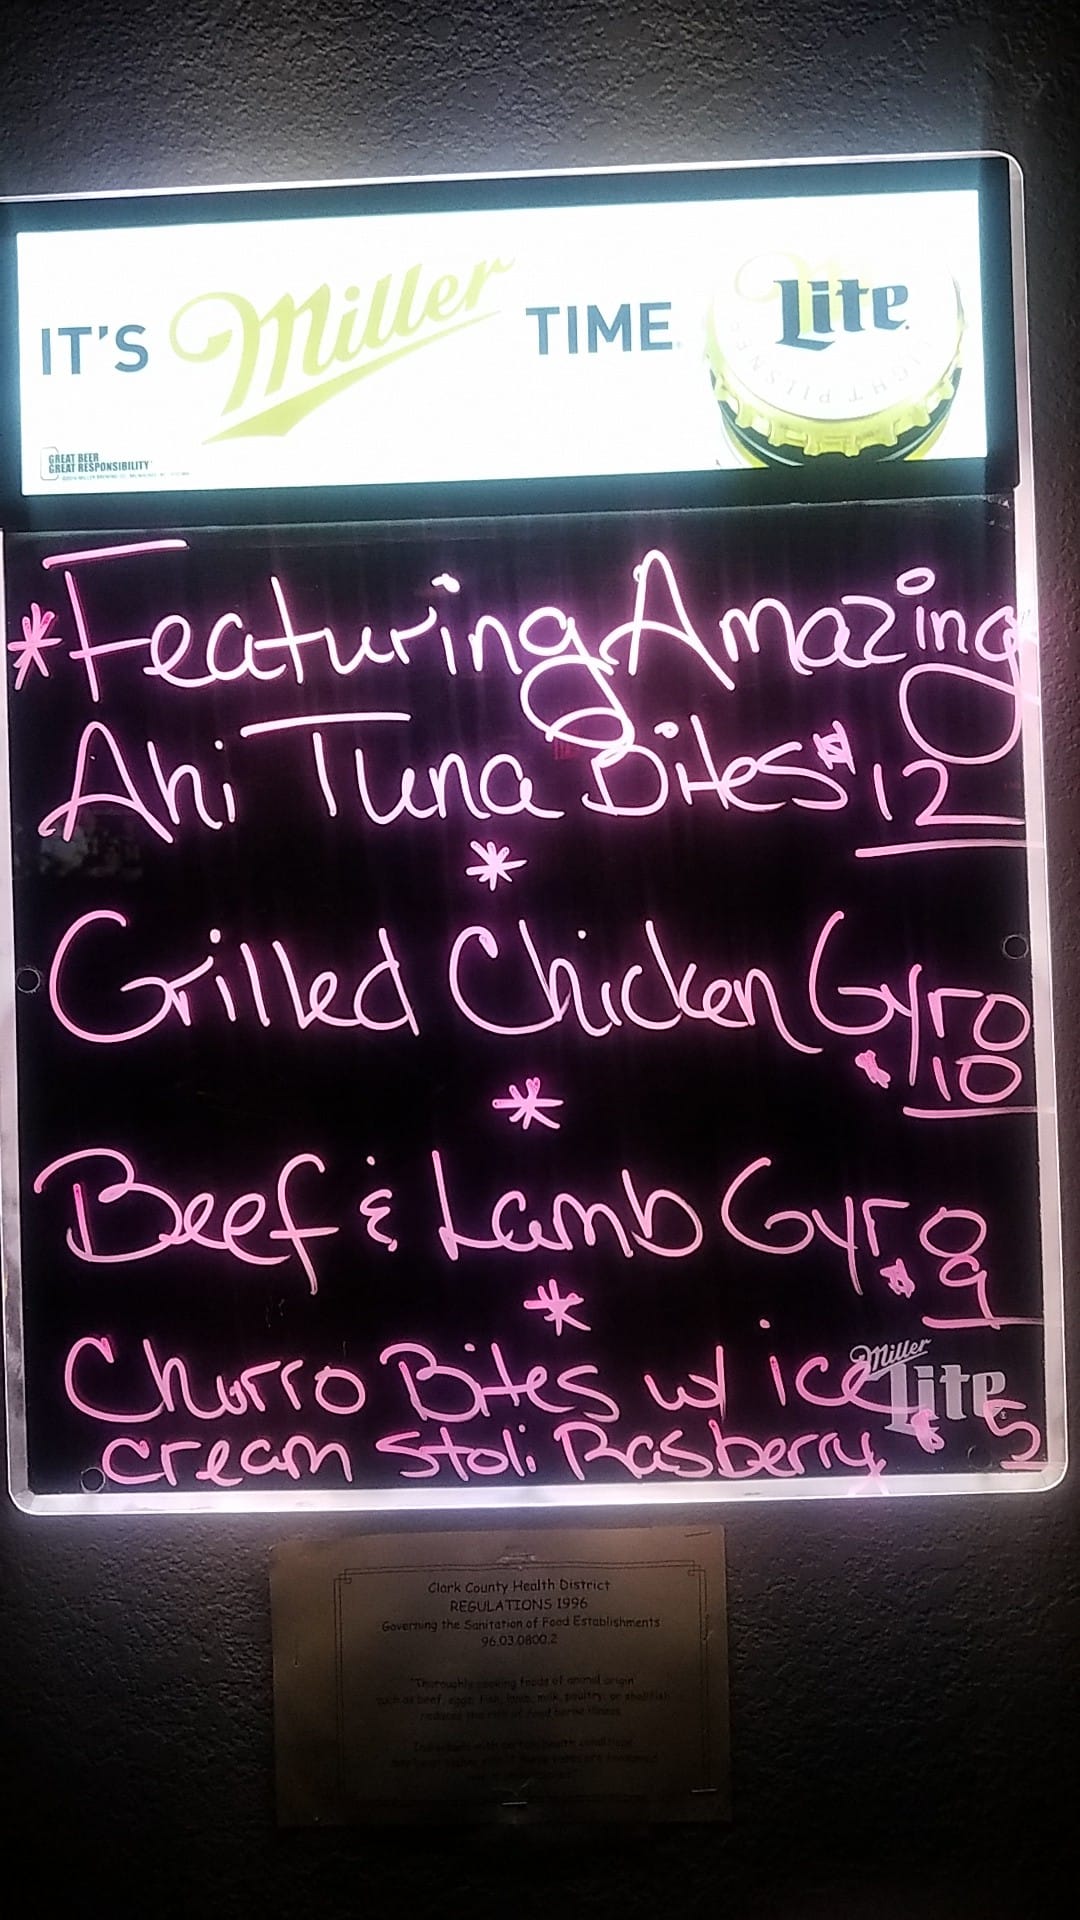 IT'S Miller TIME Lite
LIGHT PILSNER
GREAT BEER
GREAT RESPONSIBILITY
*Featuring Amazing
Ahi Tuna Bites $12
*
Grilled Chicken Gyro
$10
*
Beef & Lamb Gyro
$9
*
Churro Bites w/ ice
Miller
Lite
cream Stoli Rasberry $5
Clark County Health District
REGULATIONS 1996
Governing the Sanitation of Food Establishments
96.03.0800.2
"Thoroughly cooking foods of animal origin
such as beef, eggs, fish, lamb, milk, poultry, or shellfish
reduces the risk of food borne illness.
Individuals with certain health conditions